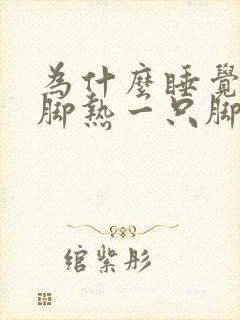 為什麼睡覺
腳熱一只腳
綰紫彤